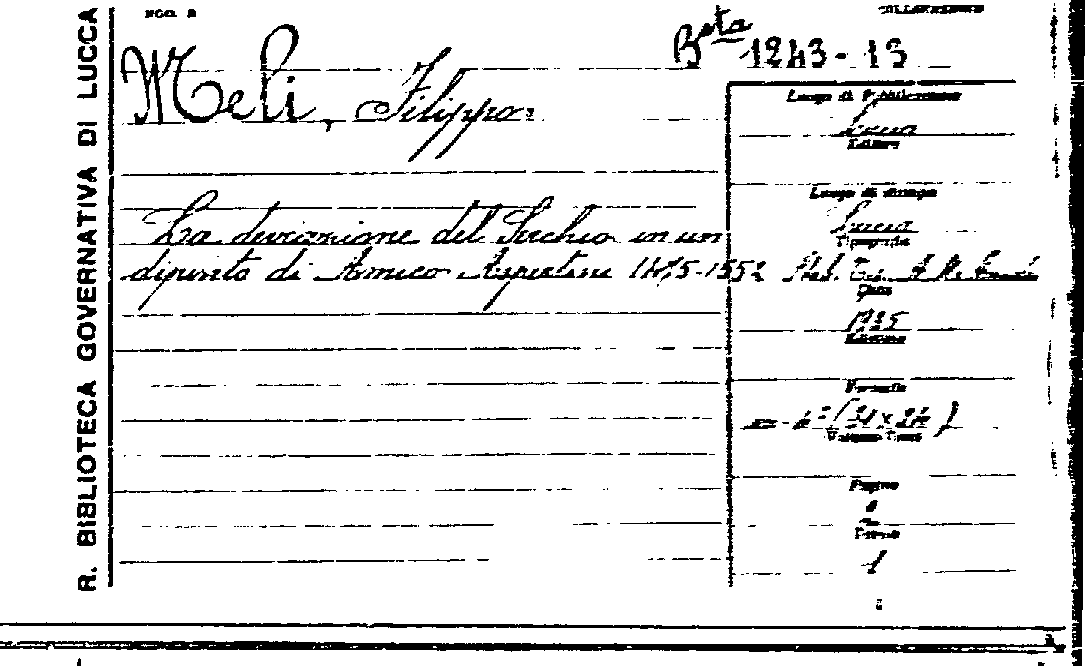 R. BIBLIOTECA GOVERNATIVA DI LUCCA
MOD. 2
COLLOCAZIONE
Bsta 1243-13
Meli, Filippo:
La deviazione del Serchio in un
dipinto di Amico Aspertini 1475-1552
Luogo di Pubblicazione
Lucca
Editore
Luogo di stampa
Lucca
Tipografia
Stab. Tip. A. M.
Data
1935
Edizione
Formato
4° (31x24)
Volumi-Tomi
Pagine
Tavole
1